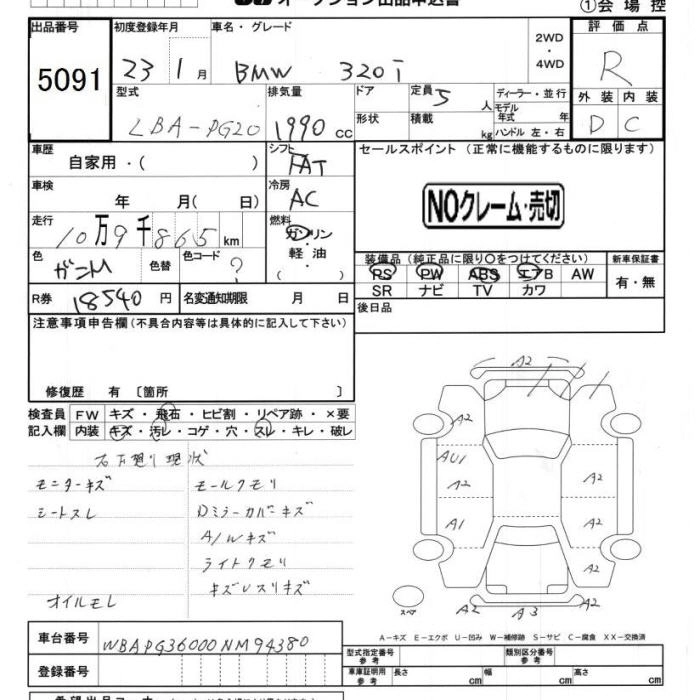 オークション出品申込書
①会場控
出品番号
5091
初度登録年月
23 1月
車名・グレード
BMW 320i
2WD
・
4WD
評価点
R
外装 内装
D C
型式
LBA-PG20
排気量
1990 cc
ドア
形状
定員 5 人
積載 kg
ディーラー・並行
モデル年式 年
ハンドル 左・右
車歴
自家用・( )
シフト
FAT
セールスポイント (正常に機能するものに限ります)
NOクレーム・売切
車検
年 月( 日)
冷房
AC
走行
10万9千865km
燃料
ガソリン
・
軽油
( )
色
ガンM
色替
色コード
?
装備品 (純正品に限り○をつけてください)
PS PW ABS エアB AW
SR ナビ TV カワ
新車保証書
有・無
R券 18540 円
名変通知期限 月 日
後日品
注意事項申告欄(不具合内容等は具体的に記入して下さい)
修復歴 有 〔箇所 〕
検査員
記入欄
FW キズ・飛石・ヒビ割・リペア跡・×要
内装 キズ・汚レ・コゲ・穴・スレ・キレ・破レ
右下廻り現状
モニターキズ
シートスレ
オイルモレ
モールクモリ
Dミラーカバーキズ
A/Wキズ
ライトクモリ
A2
A2
AU1
A2
A1
A2
A2
A2
A2
A3
A2
スペア
A-キズ E-エクボ U-凹み W-補修跡 S-サビ C-腐食 XX-交換済
車台番号
WBAPG36000NM94380
登録番号
型式指定番号
参考
類別区分番号
参考
車庫証明用
参考
長さ cm
幅 cm
高さ cm